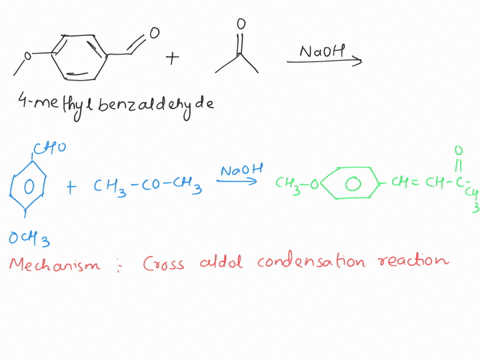 O O
O + NaOH
4-methylbenzaldehyde
CHO
+ CH3-CO-CH3 NaOH
OCH3
CH3-O CH=CH-C-CH3
O
Mechanism : Cross aldol condensation reaction